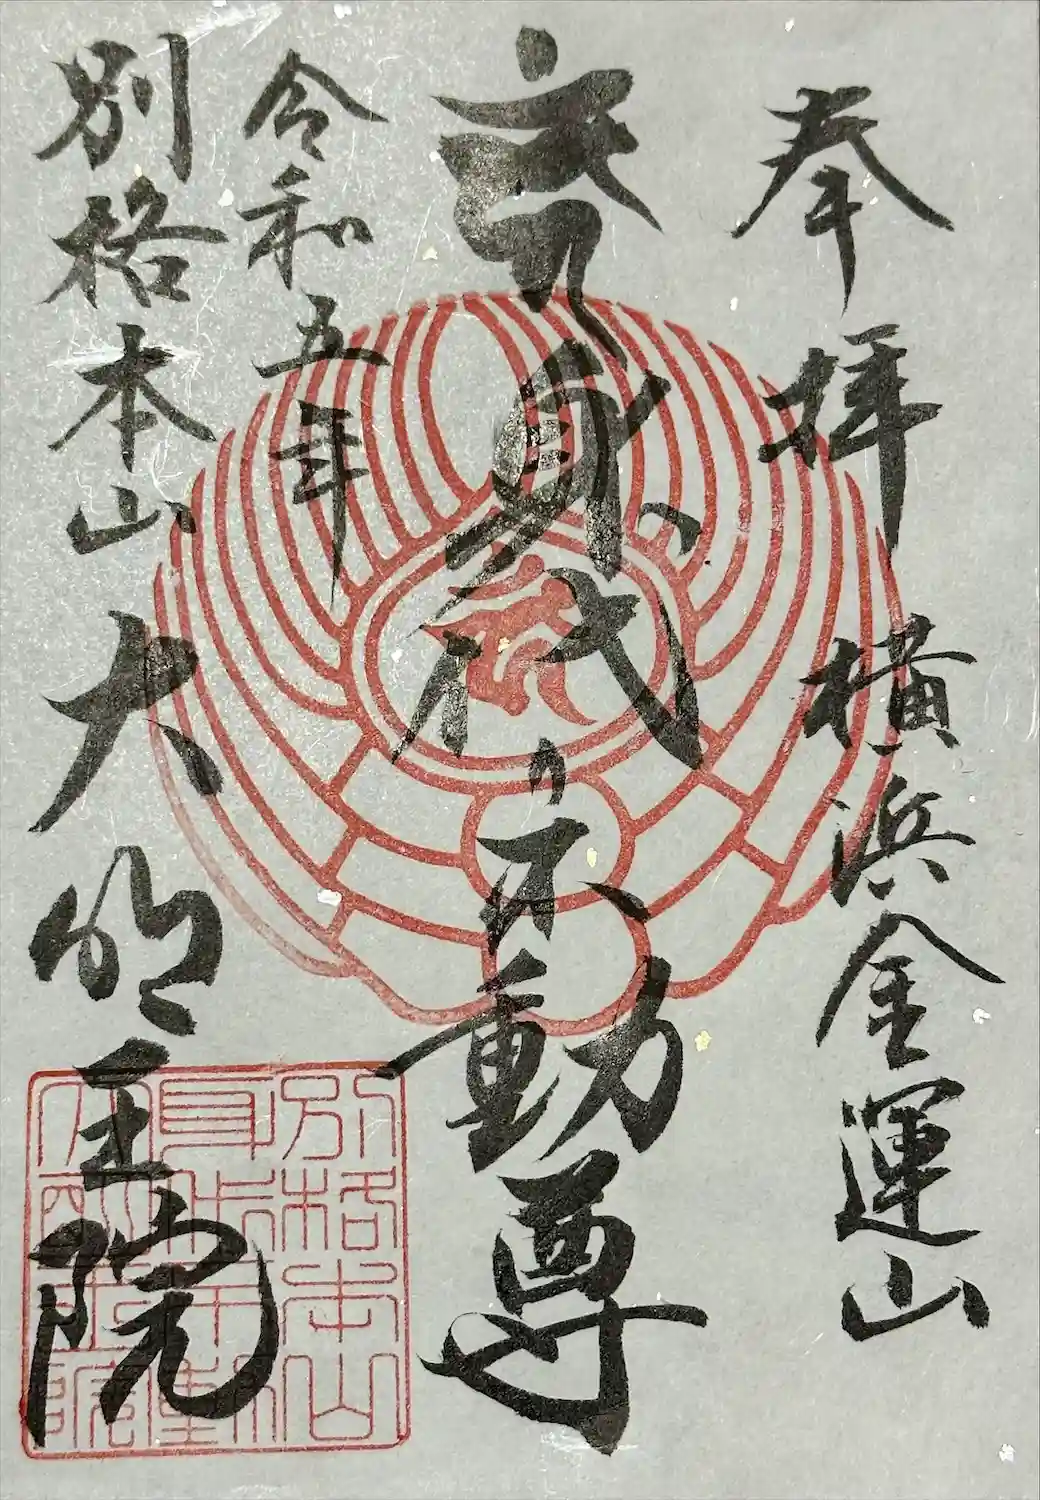 奉拝
横浜金運山
身代り不動尊
令和五年
別格本山
大明王院
別格本山
身代不動
大明王院